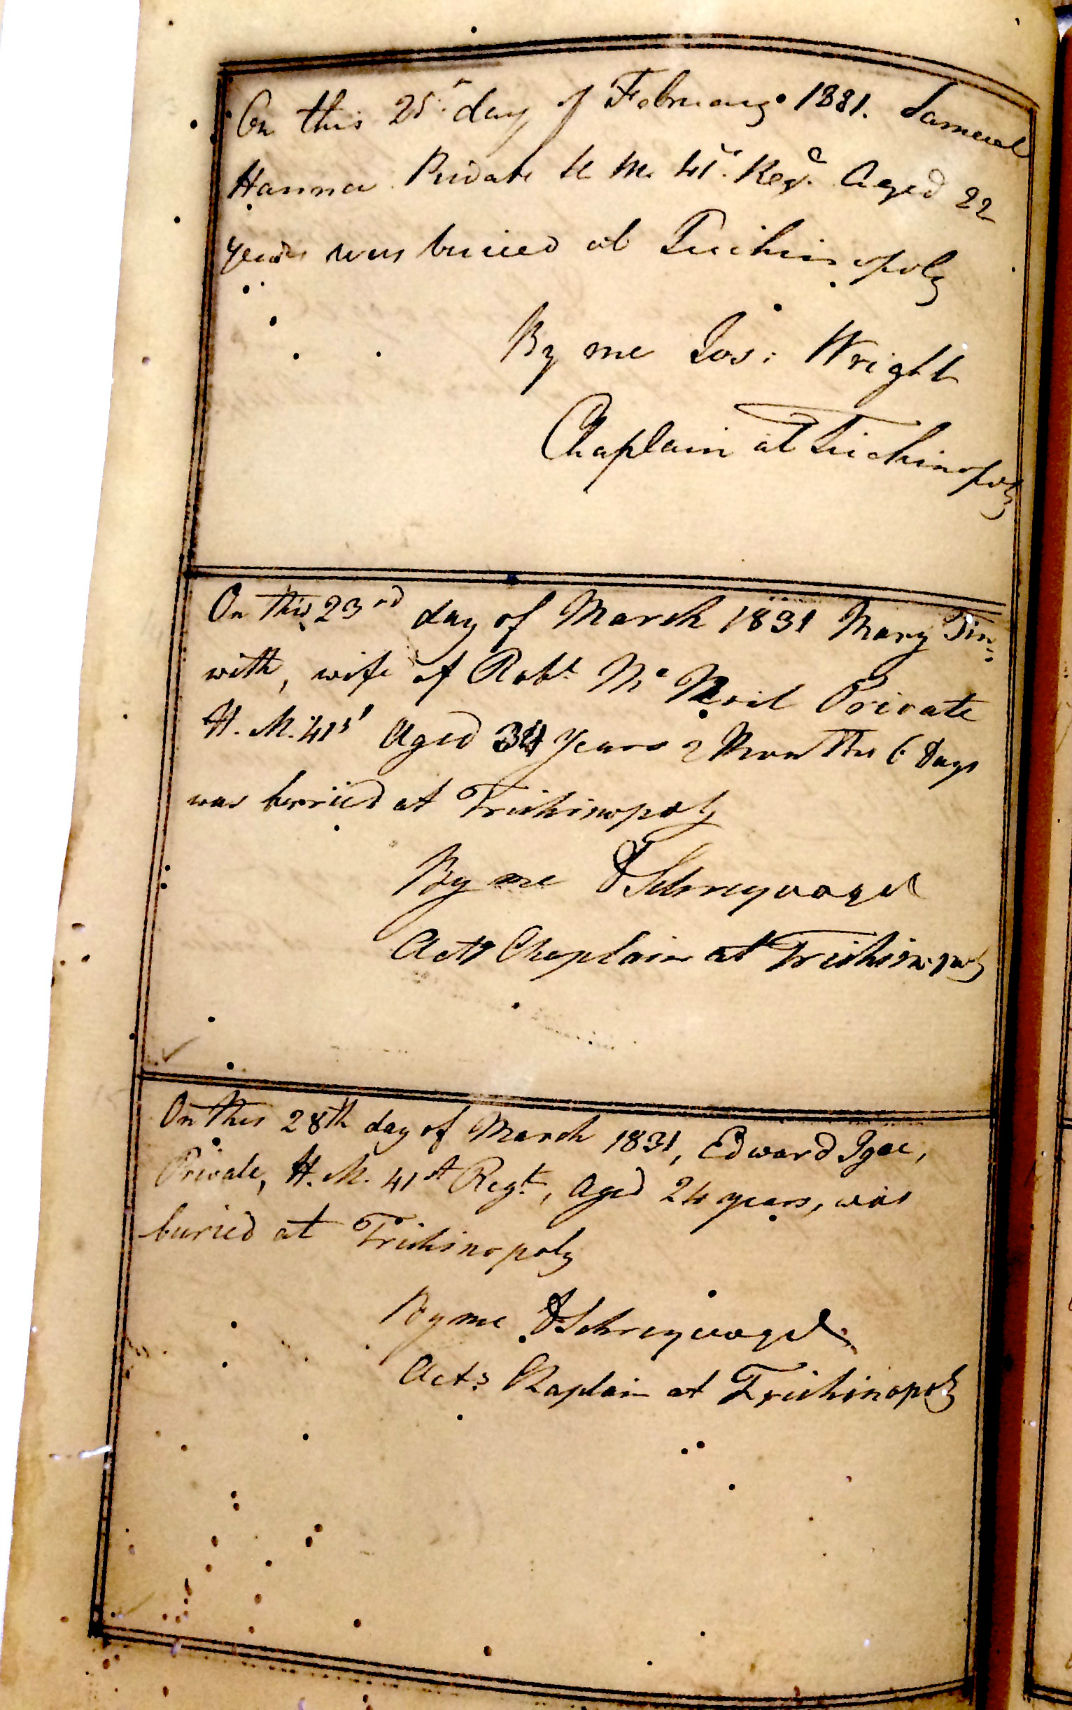 On this 25th day of February 1831. Samuel
Hanna Private H. M. 41st Regt. Aged 22
years was buried at Trichinopoly
By me Jos: Wright
Chaplain at Trichinopoly
On this 23rd day of March 1831 Mary
with, wife of Robt Mc Neil Private
H. M. 41st Aged 34 years 2 Months 6 days
was burried at Trichinopoly
By me Schreyvogel
Actg Chaplain at Trichinopoly
On this 28th day of March 1831, Edward
Private, H. M. 41st Regt, Aged 24 years, was
buried at Trichinopoly
By me Schreyvogel
Actg Chaplain at Trichinopoly